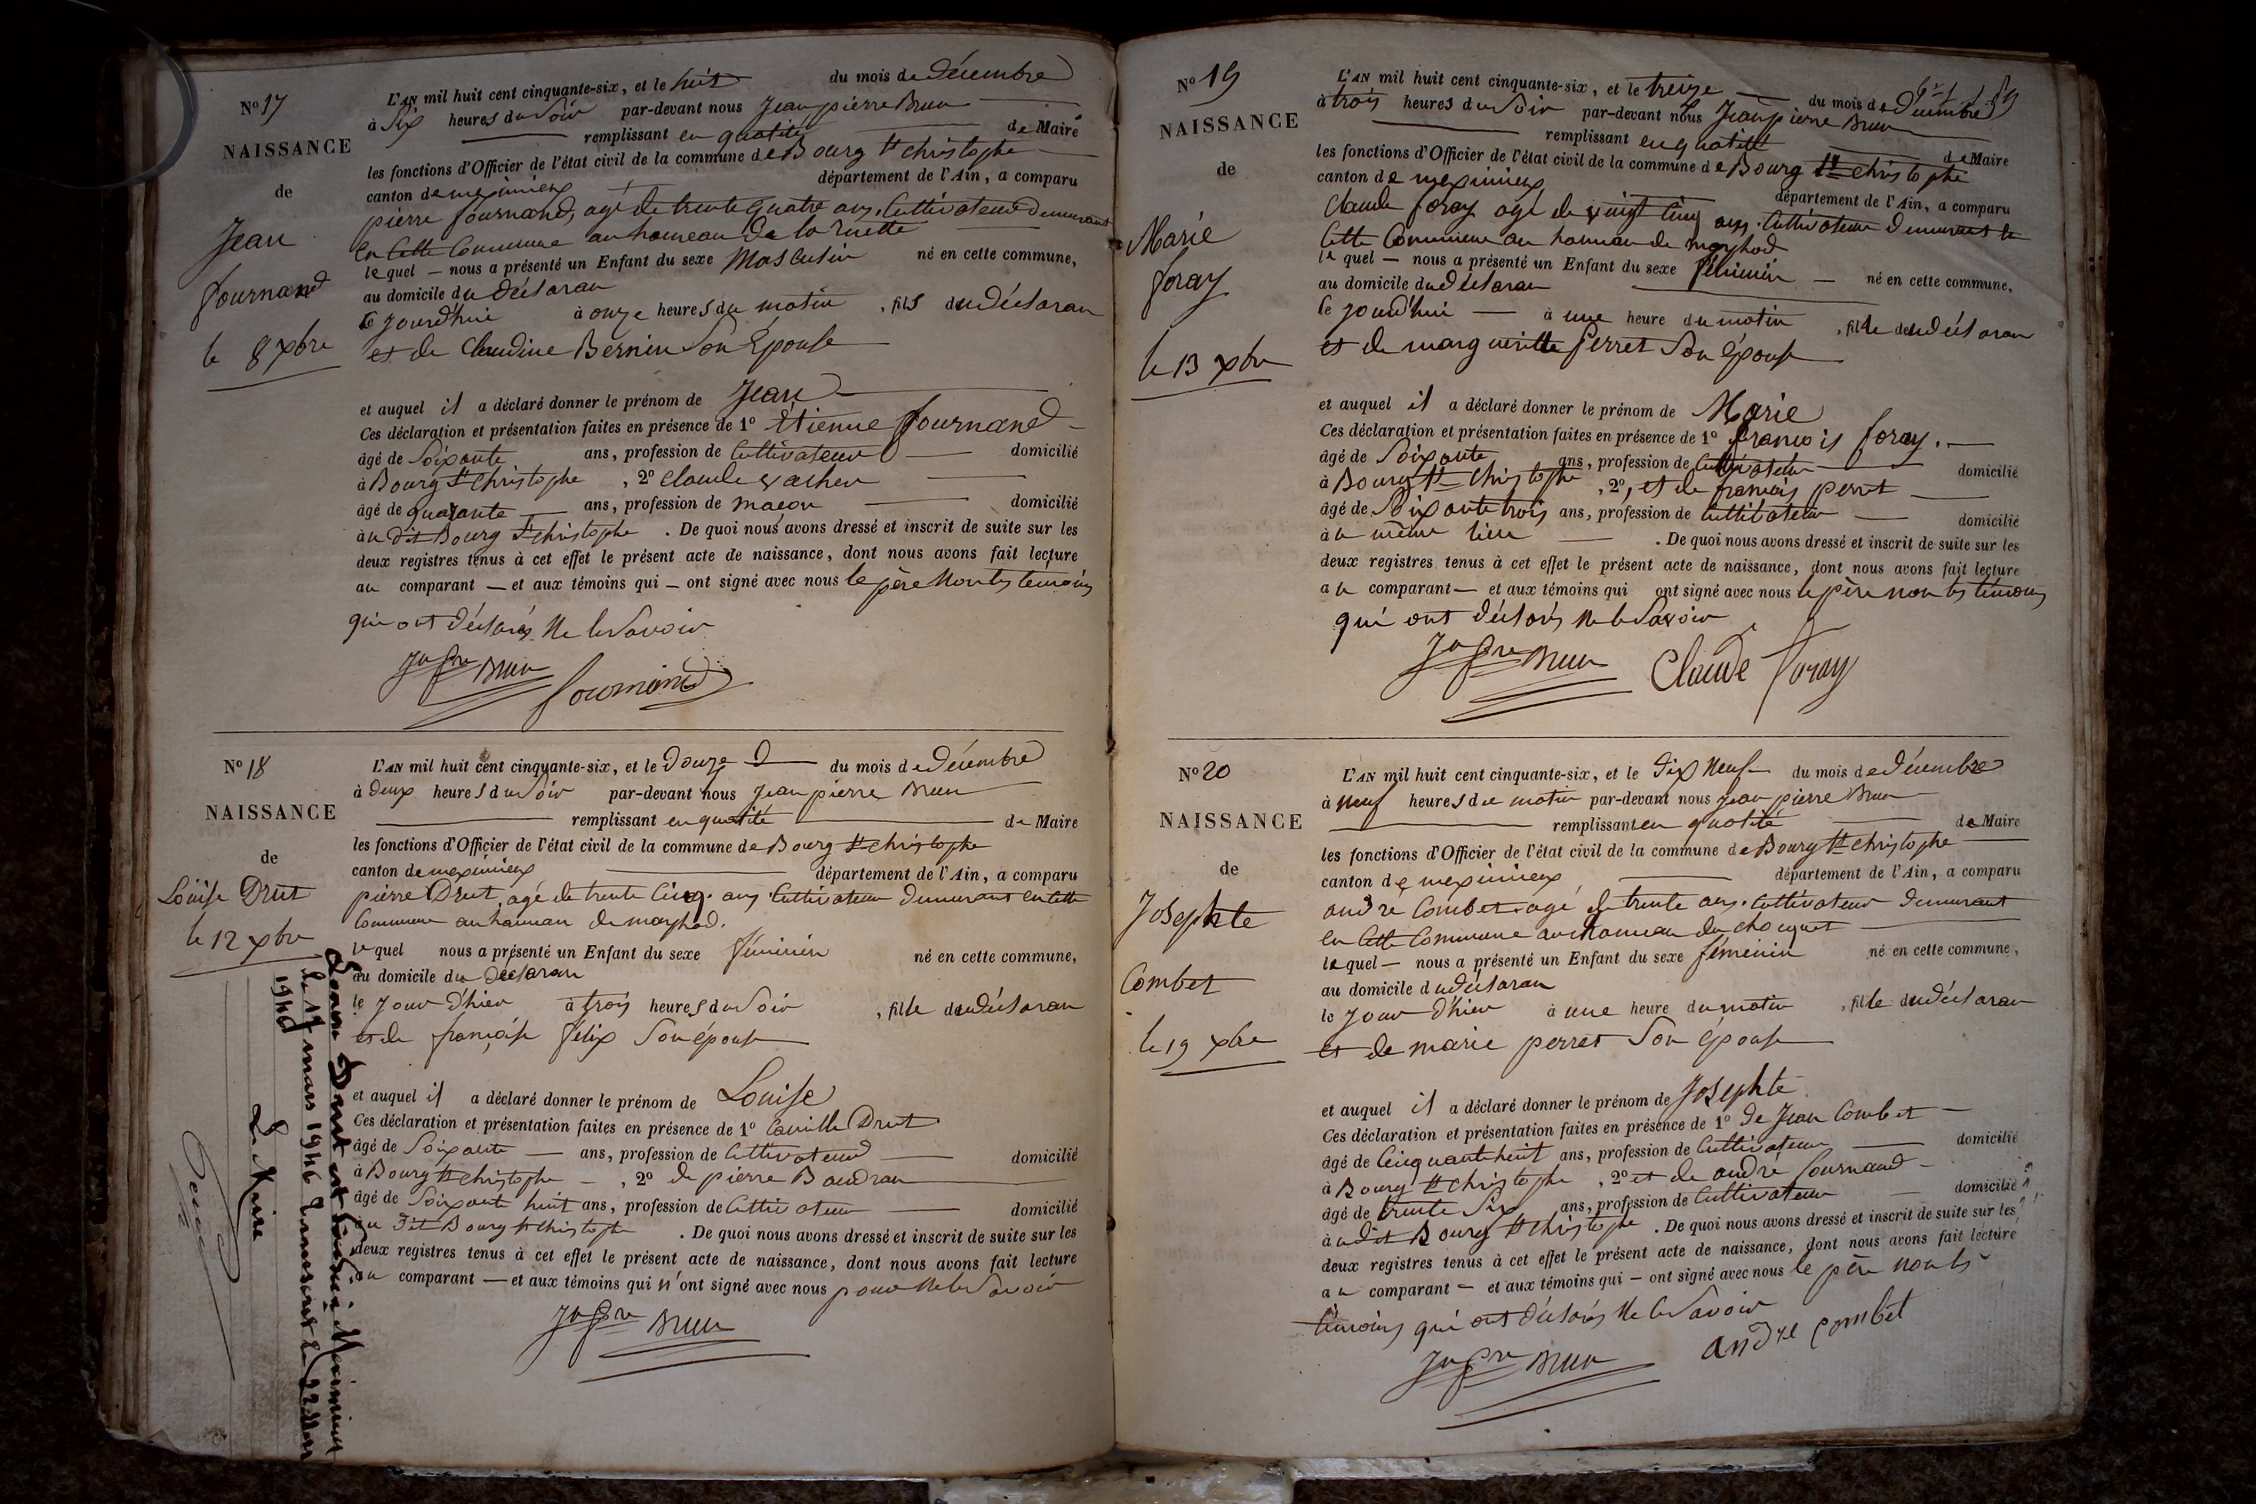 N° 17
NAISSANCE
de
Jean
fournand
le 8 xbre
L'AN mil huit cent cinquante-six, et le huit du mois de décembre
à Six heures du Soir par-devant nous Jean pierre Brun
remplissant en qualité de Maire
les fonctions d'Officier de l'état civil de la commune de Bourg St christophe
canton de meximieux département de l'Ain, a comparu
pierre fournand, agé de trente quatre ans, Cultivateur demeurant
en Cette Commune au hameau de la ruette
le quel — nous a présenté un Enfant du sexe Masculin né en cette commune,
au domicile du déclaran
le jourd'hui à onze heures du matin, fils du déclaran
et de Claudine Bernin Son Épouse
et auquel il a déclaré donner le prénom de Jean
Ces déclaration et présentation faites en présence de 1° étienne fournand
âgé de Soixante ans, profession de Cultivateur domicilié
à Bourg St christophe, 2° claude vacher
âgé de quarante ans, profession de maçon domicilié
au dit Bourg St christophe. De quoi nous avons dressé et inscrit de suite sur les
deux registres tenus à cet effet le présent acte de naissance, dont nous avons fait lecture
au comparant — et aux témoins qui — ont signé avec nous le père Non les temoins
qui ont déclarés Ne le Savoir
Jn Pre Brun fournand
N° 18
NAISSANCE
de
Louise Drut
le 12 xbre
L'AN mil huit cent cinquante-six, et le douze du mois de décembre
à deux heures du Soir par-devant nous Jean pierre Brun
remplissant en qualité de Maire
les fonctions d'Officier de l'état civil de la commune de Bourg St christophe
canton de meximieux département de l'Ain, a comparu
pierre Drut, agé de trente Cinq ans Cultivateur demeurant en Cette
Commune au hameau de
le quel nous a présenté un Enfant du sexe féminin né en cette commune,
au domicile du déclaran
le jour d'hier à trois heures du Soir, fille du déclaran
et de françoise félix Son épouse
et auquel il a déclaré donner le prénom de Louise
Ces déclaration et présentation faites en présence de 1° Camille Drut
âgé de Soixante — ans, profession de Cultivateur domicilié
à Bourg St christophe —, 2° de pierre Baudran
âgé de Soixante huit ans, profession de Cultivateur domicilié
au dit Bourg St christophe. De quoi nous avons dressé et inscrit de suite sur les
deux registres tenus à cet effet le présent acte de naissance, dont nous avons fait lecture
au comparant — et aux témoins qui n'ont signé avec nous pour Ne le Savoir
Jn Pre Brun
Louise Drut est décédée à Meximieux
le 17 mars 1946 transcrit le 22 Mars
1946
Le Maire
N° 19
NAISSANCE
de
Marie
foray
le 13 xbre
L'AN mil huit cent cinquante-six, et le treize du mois de décembre
à trois heures du Soir par-devant nous Jean pierre Brun
remplissant en qualité de Maire
les fonctions d'Officier de l'état civil de la commune de Bourg St christophe
canton de meximieux département de l'Ain, a comparu
Claude foray agé de vingt Cinq ans, Cultivateur demeurant en
Cette Commune au hameau de
le quel — nous a présenté un Enfant du sexe féminin — né en cette commune,
au domicile du déclaran
le jourd'hui — à une heure du matin, fille du déclaran
et de marguerite perret Son épouse
et auquel il a déclaré donner le prénom de Marie
Ces déclaration et présentation faites en présence de 1° francois foray. —
âgé de Soixante ans, profession de Cultivateur domicilié
à Bourg St christophe, 2°, et de françois perret
âgé de Soixante trois ans, profession de Cultivateur — domicilié
au même lieu — . De quoi nous avons dressé et inscrit de suite sur les
deux registres tenus à cet effet le présent acte de naissance, dont nous avons fait lecture
au comparant — et aux témoins qui ont signé avec nous le père non les témoins
qui ont déclarés Ne le Savoir
Jn Pre Brun Claude foray
N° 20
NAISSANCE
de
Josephte
Combet
le 19 xbre
L'AN mil huit cent cinquante-six, et le dix Neuf du mois de décembre
à neuf heures du matin par-devant nous Jean pierre Brun
remplissant en qualité de Maire
les fonctions d'Officier de l'état civil de la commune de Bourg St christophe
canton de meximieux département de l'Ain, a comparu
andré Combet agé de trente ans, Cultivateur demeurant
en Cette Commune au hameau du
le quel — nous a présenté un Enfant du sexe féminin né en cette commune,
au domicile du déclaran
le jour d'hier à une heure du matin, fille du déclaran
et de marie perret Son épouse
et auquel il a déclaré donner le prénom de Josephte
Ces déclaration et présentation faites en présence de 1° de Jean Combet —
âgé de Cinquante huit ans, profession de Cultivateur domicilié
à Bourg St christophe, 2° et de andré fournand —
âgé de trente Six ans, profession de Cultivateur domicilié
au dit Bourg St christophe. De quoi nous avons dressé et inscrit de suite sur les
deux registres tenus à cet effet le présent acte de naissance, dont nous avons fait lecture
au comparant — et aux témoins qui — ont signé avec nous le père non les
témoins qui ont déclarés Ne le Savoir
Jn Pre Brun andré Combet